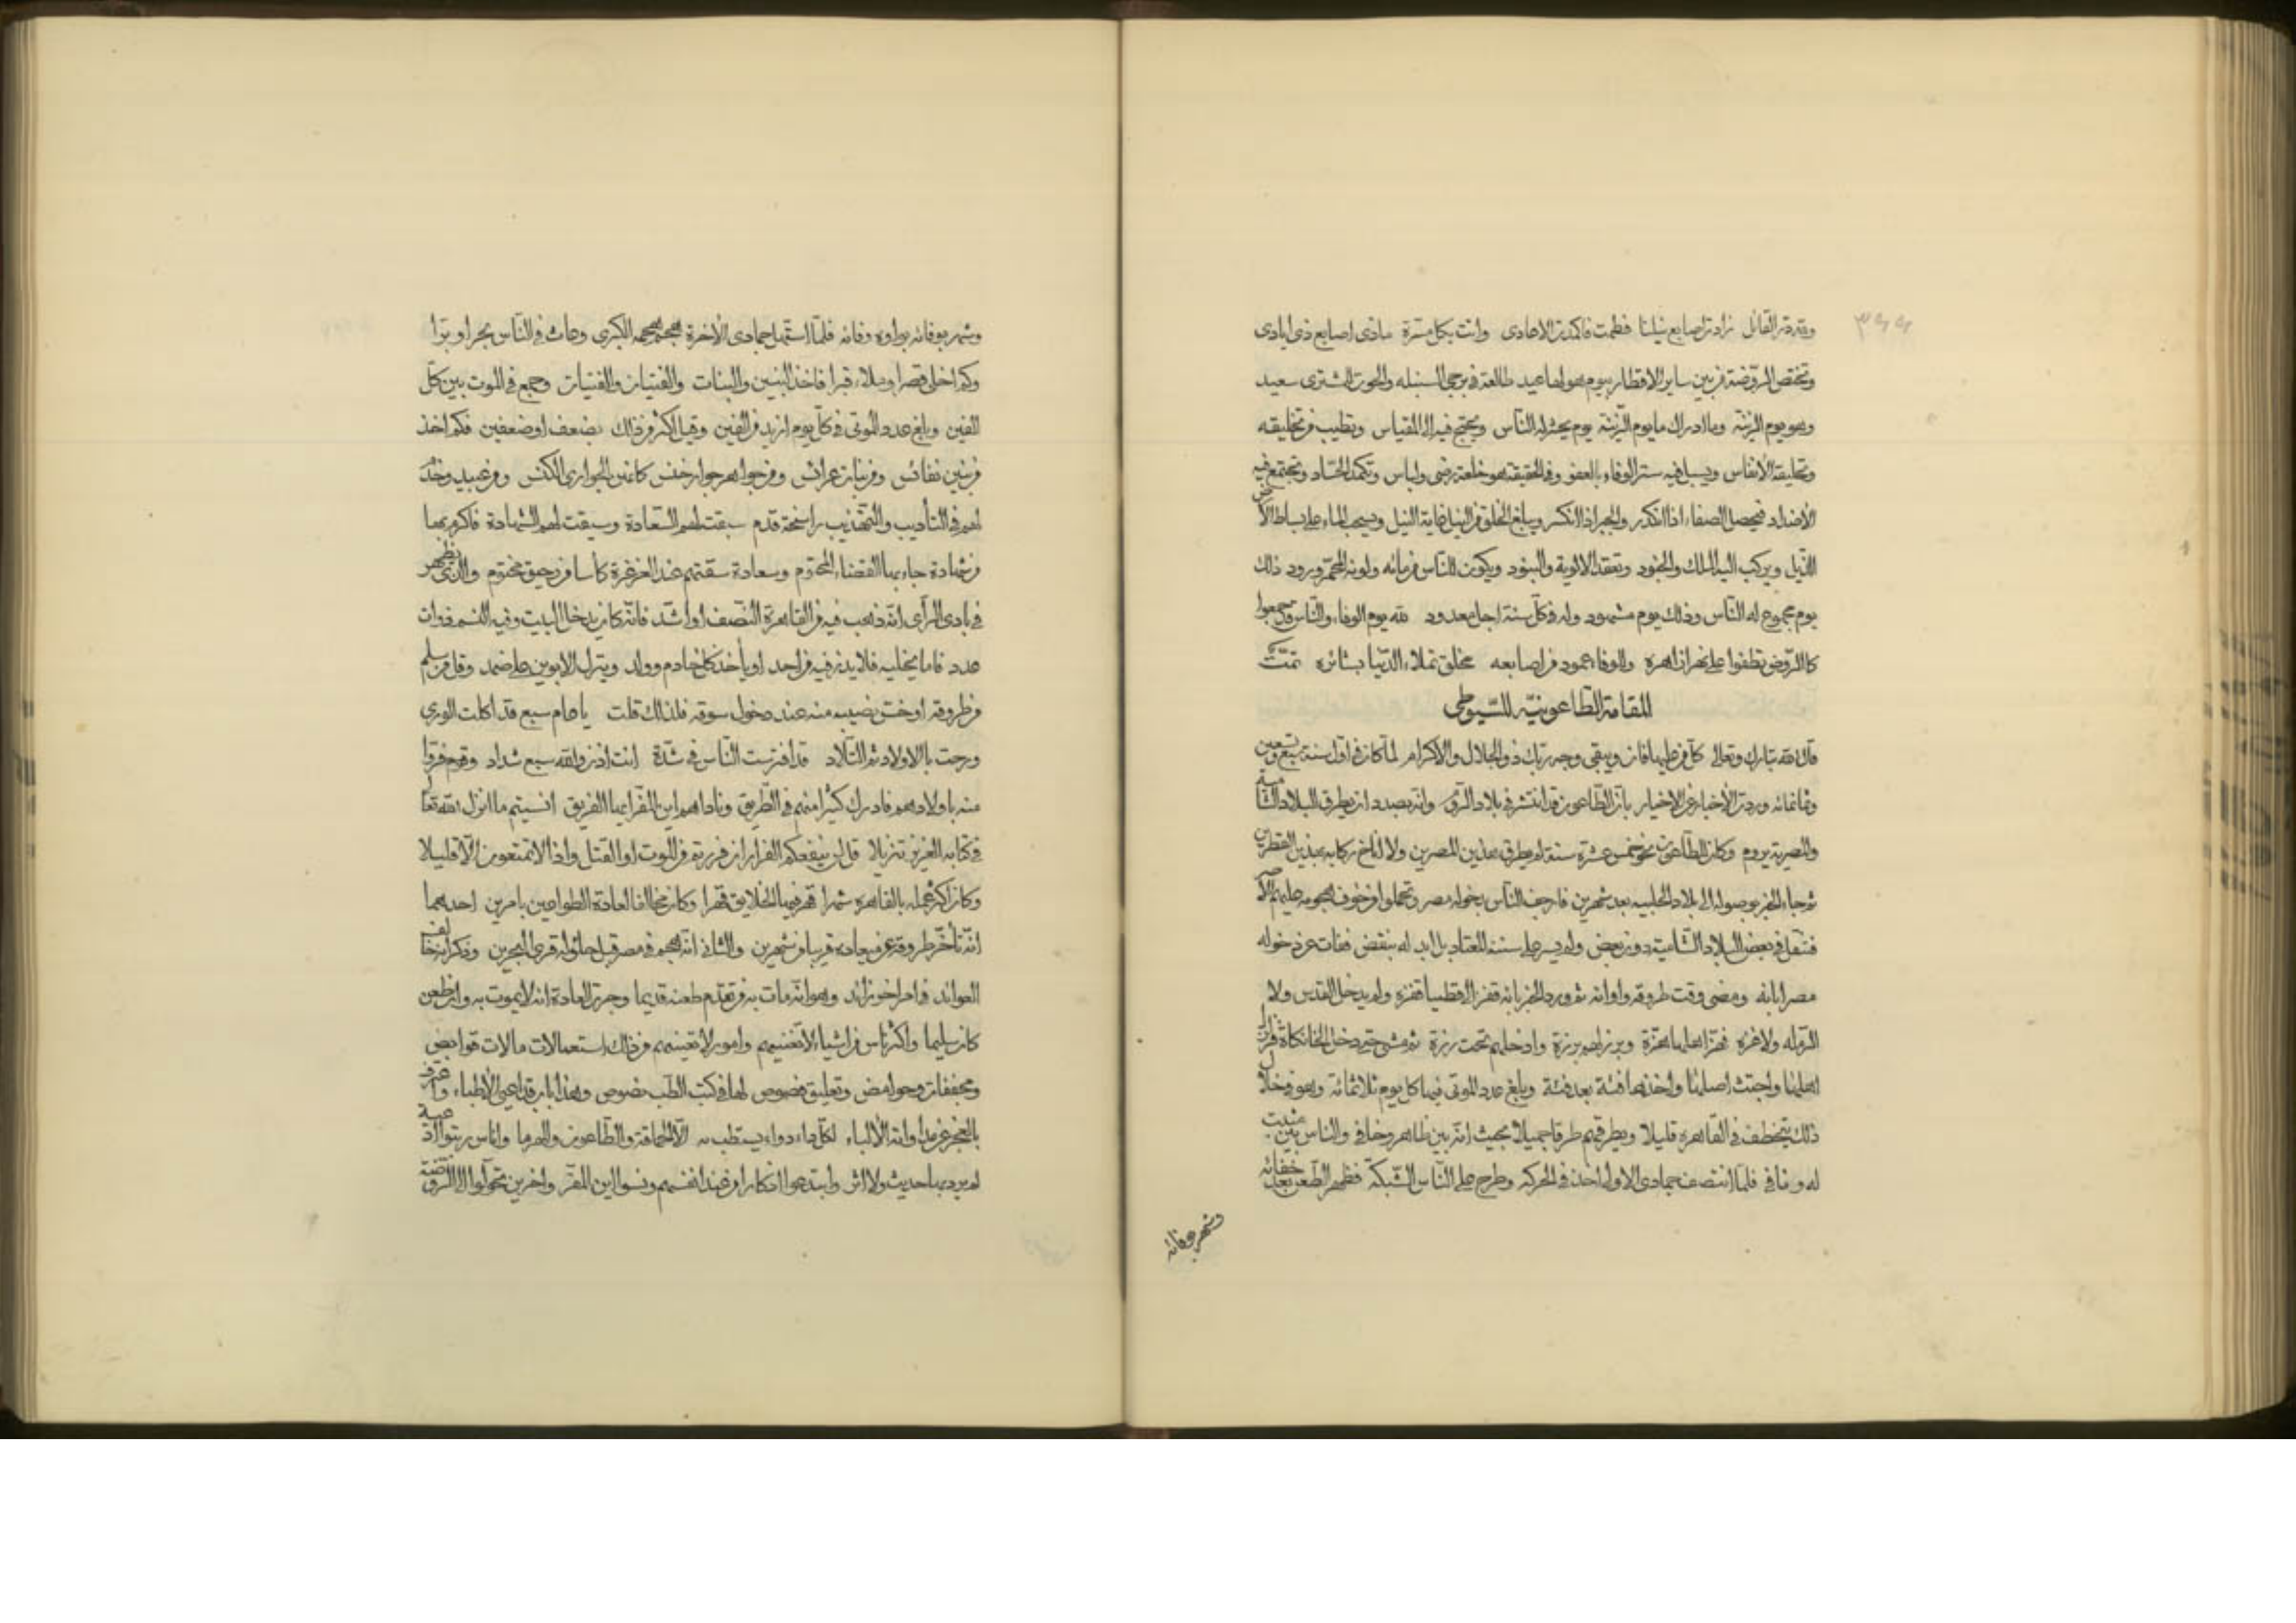 ٣٩٩
ولله در القائل زادت اصابع نيلنا فطمت فاكمدت الاعادى واتت بكل مسرة ماذى اصابع ذى ايادى
وتختص الروضة من بين ساير الاقطار بيوم هو لها عيد طالعه فى برجى السنبله والحوت المشترى سعيد
وهو يوم الزينة وما ادراك ما يوم الزينة يوم يحشر له الناس ويجتمع فيه الى المقياس وتطيب من تخليقه
وتخليقه الانفاس ويسبل فيه ستر الوفاء بالعفو وفى الحقيقة هو خلعة رضى ولباس وتكمد الحساد وتجتمع فيه
الأضداد فيحصل الصفاء اذا انكدر والجبر اذا انكسر ويبلغ الخلق من النيل غاية النيل ويسحب الماء على بساط الارض
الذيل ويركب اليه الملك والجنود وتعقد الالوية والبنود ويكون للناس من مائه ولونه المحمر ورود ذلك
يوم مجموع له الناس وذلك يوم مشهود وله فى كل سنة اجل معدود لله يوم الوفاء والناس قد جمعوا
كالروض تطفوا على نهر ازاهره وللوفاء عمود من اصابعه مخلق تملاء الدنيا بشائره تمت
المقامة الطاعونيّه للسّيوطى
قال الله تبارك وتعالى كل من عليها فان ويبقى وجه ربك ذو الجلال والاكرام لما كان فى اول سنة سبع وتسعين
وثمانمائه وردت الأخبار عن الاخيار بان الطاعون قد انتشر فى بلاد الروم وانه بصدد ان يطرق البلاد الشامية
والمصرية يروم وكان الطاعون نحو خمس عشرة سنة لم يطرق هذين المصرين ولا اناخ ركابه بهذين القطرين
ثم جاء الخبر بوصوله الى البلاد الحلبيه بعد شهرين فارجف الناس بدخوله مصر وتحملوا من خوف هجومه عليهم الأصر
فتنقل فى بعض البلاد الشامية دون بعض ولم يسر على سننه المعتاد بل ابد له بنقض ففات عن دخوله
مصر ابانه ومضى وقت طروقه واوانه ثم ورد الخبر بانه قفز الى قطيا قفزه ولم يدخل القدس ولا
الرمله ولا غزه فهز اهلها هزة وبرز لهم برزة وادخلهم تحت رزة ثم مشى حتى دخل الخانكاة فزلزل
اهلها واجتث اصلها واخذها فئة بعد فئة وبلغ عدد الموتى فيها كل يوم ثلاثمائه وهو فى خلال
ذلك يتخطف فى القاهره قليلا ويطرقهم طرقا جميلا بحيث انه بين ظاهر وخافى والناس بين مثبت
له ونافى فلما انتصف جمادى الاولى اخذ فى الحركه وطرح على الناس الشبكة فظهر الطعن بعد خفائه
وشهر بوفائه
وشهر بوفائه بواوه وفائه فلما استهل جمادى الأخرة هجم هجمه الكبرى وعاث فى الناس بحرا وبرا
وكم اخلى قصرا وملاء قبرا فاخذ البنين والبنات والفتيان والفتيات وجمع فى الموت بين كل
الفين وبلغ عدد الموتى فى كل يوم ازيد من الفين وقيل اكثر من ذلك بضعف او ضعفين فكم اخذ
من بنين نفائس ومن بنات عرائس ومن جواهر جوار خنس كانهن الجوارى الكنس ومن عبيد وخدم
لهم فى التأديب والتهذيب راسخة قدم سبقت لهم السعادة وسيقت لهم الشهادة فاكرم بها
من شهادة جاء بها القضاء المحتوم وسعادة سقتهم عند الغرغرة كأسا من رحيق مختوم والذى يظهر
فى بادى الرأى انه ذهب فيه من القاهرة النصف او اشد فانه كان يدخل البيت وفيه النسم ذوات
عدد فاما يخليه فلا يدع فيه من احد او يأخذ كل خادم وولد ويترك الابوين على ضمد وقل من سلم
من طروقه او خس نصيبه منه عند دخول سوقه فلذلك قلت يا عام سبع قد اكلت الورى
ورحت بالاولاد ثم التلاد قد افترست الناس فى شدة انت اذن والله سبع شداد وقوم فروا
منه باولادهم فادرك كثيرا منهم فى الطريق وناداهم اين المفر ايها الفريق انسيتم ما انزل الله تعالى
فى كتابه العزيز تنزيلا قل لن ينفعكم الفرار ان فررتم من الموت او القتل واذا لا تمتعون الا قليلا
وكان اكثر عمله بالقاهره شهرا قهر فيها الخلايق قهرا وكان مخالفا لعادة الطواعين بامرين احدهما
انه تأخر طروقه عن ميعاده قريبا من شهرين والثانى انه هجم فى مصر قبل حلوله قرى البحرين وذكر انه خالف
العوائد فى امر اخر زائد وهو انه مات به من تقدم طعنه قديما وجرت العادة انه لا يموت به وان طعن
كان سليما واكثر ناس من اشياء لا تغنيهم وامور لا تعينهم من ذلك استعمالات مالات قوابض
ومجففات وحوامض وتعليق فصوص لها فى كتب الطب نصوص وهذا باب قد اعيى الأطباء واعترف
بالعجز عن مداواته الألباء لكل داء دواء يستطب به الا الحماقة والطاعون والهرما واناس رتبوا ادعية
لم يرد بها حديث ولا اثر وابتدعوا اذكارا من عند انفسهم ونسوا اين المفر واخرين تحولوا الى الروضة